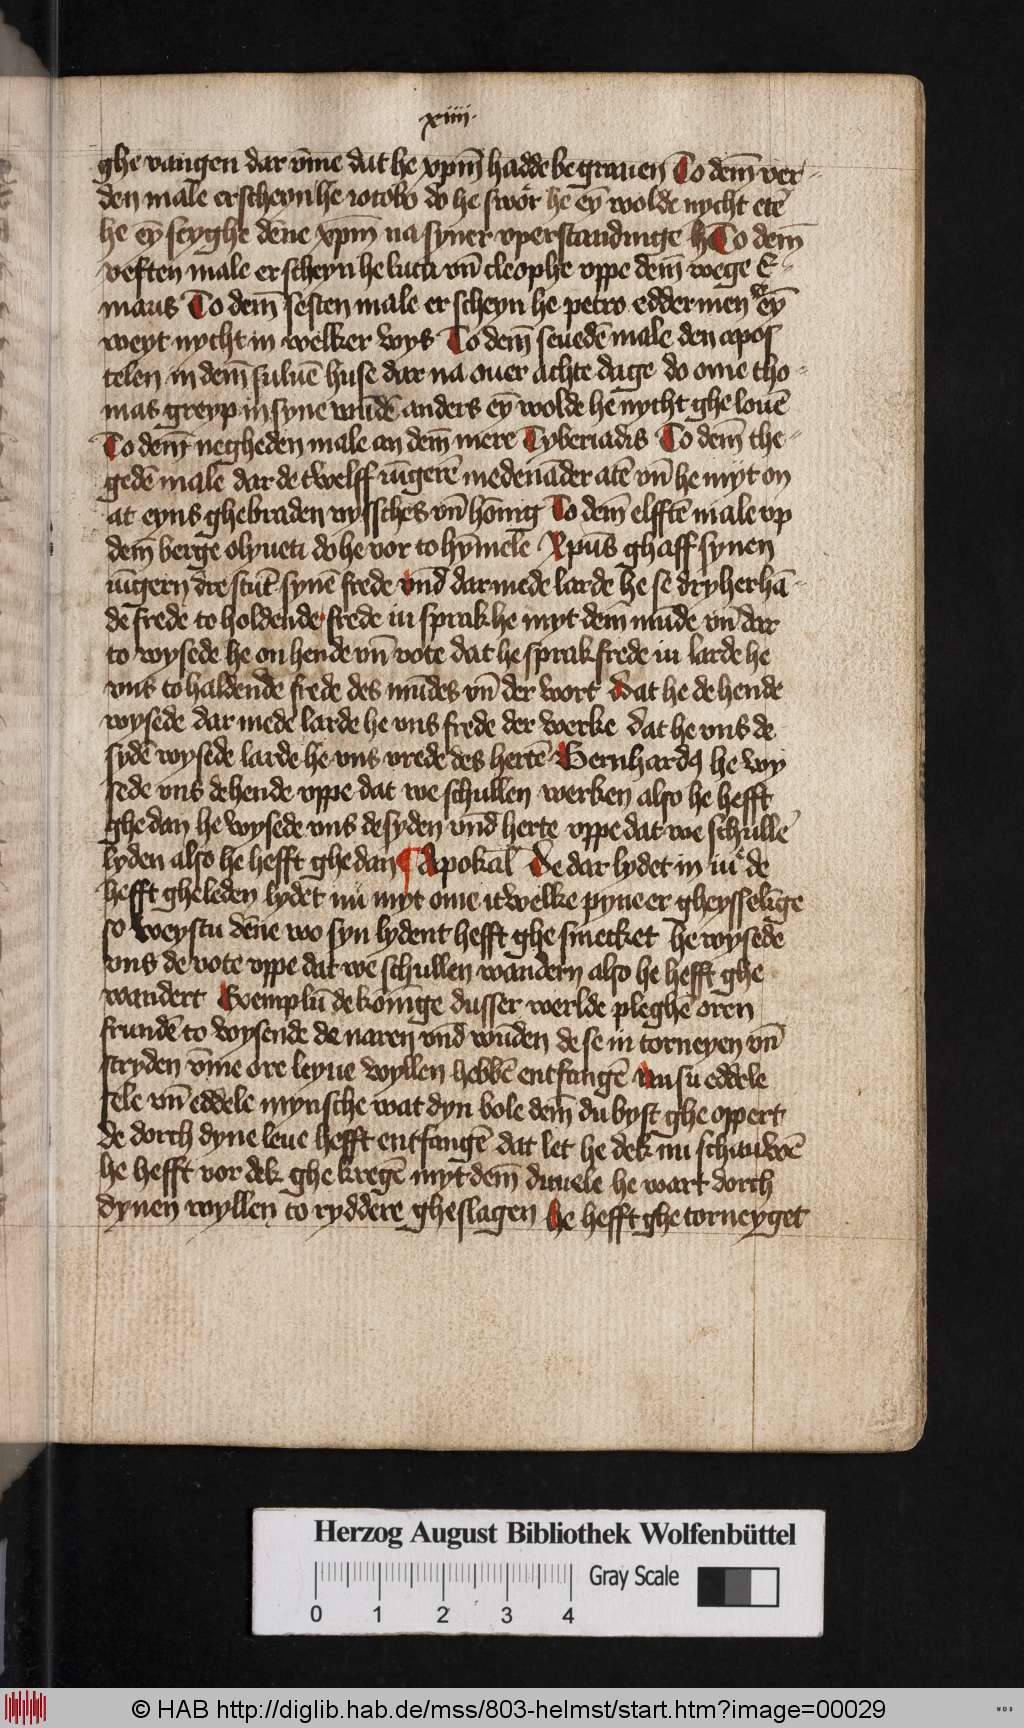 xiiii.
ghe vangen dar vm̄e dat he xpm̄ hadde be grauen To dem̄ ver-
den male erscheyn he iocobo do he swor he ey̅ wolde nycht ete̅
he ey̅ seyghe de̅ne xpm̄ na syner vperstandinge he To dem̄
veften male er scheyn he luca vn̅ cleophe vppe dem̄ wege E-
maus To dem̄ sesten male er scheyn he petro edder men ey̅
weyt nycht in welker wys To dem̄ seuede̅ male den apos
telen in dem̄ sulue̅ huse dar na ouer achte dage do ome tho-
mas greyp in syne wu̅de̅ anders ey̅ wolde he nycht ghe loue̅
To dem̄ negheden male an dem̄ mere Tyberiadis To dem̄ the-
gede̅ male dar de twelff iu̅gere̅ nedena̅der ate̅ vn̅ he myt on
at eyns ghebraden vyssches vn̅ ho̅nig To dem̄ elffte̅ male vp
dem̄ berge olyueti do he vor to hy̅mele Xpus̅ ghaff synen
iu̅gern dre stu̅t syne̅ frede vnd̅ dar mede larde he se dryherha̅-
de frede to holdende frede iu sprak he myt dem mu̅de vn̅ dar
to wysede he on hende vn̅ vote dat he sprak frede iu larde he
vns to haldende frede des mu̅des vn̅ der wort dat he de hende
wysede dar mede larde he vns frede der werke dat he vns de
syde̅ wysede larde he vns vrede des herte̅ Bernhardꝯ he wy
sede vns de hende vppe dat we schullen werken also he hefft
ghe dan he wysede vns de syden vnd̅ herte vppe dat we schulle̅
lyden also he hefft ghe dan ¶ Apokal̅ De dar lydet in iu de
hefft gheleden lydet nu myt ome itwelke pyne er gheysseli̅ge
so weystu de̅ne wo syn lydent hefft ghe smecket he wysede
vns de vote vppe dat we schullen wandern also he hefft ghe
wandert Exemplu̅ de koni̅ge dusser werlde pleghe̅ oren
frunde̅ to wysende de naren vnd̅ wu̅den de se in torneyen vn̅
stryden vm̄e ore leyue wyllen hebbe̅ entfange̅ Nu su eddele
sele vn̅ eddele mynsche wat dyn bole dem̄ du byst ghe oppert
de dorch dyne leue hefft entfange̅ dat let he dek nu schauwe̅
he hefft vor dek ghe krege̅ myt dem̄ duuele he wart dorch
dynen wyllen to ryddere gheslagen he hefft ghe torneyget
Herzog August Bibliothek Wolfenbüttel
Gray Scale
0 1 2 3 4
© HAB http://diglib.hab.de/mss/803-helmst/start.htm?image=00029